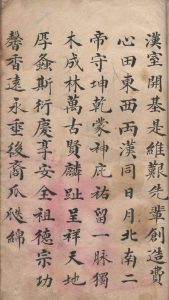 漢室開基是維艱先輩創造費
心田東西兩漢同日月北南二
帝守坤乾蒙神庇祐留一脉獨
木成林萬古賢麟趾呈祥天地
厚螽斯衍慶享安全祖德宗功
馨香遠永垂後裔瓜瓞綿